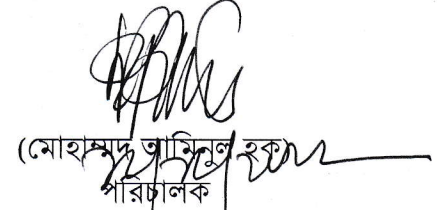 (মোহাম্মদ আমিনুল হক)
পরিচালক